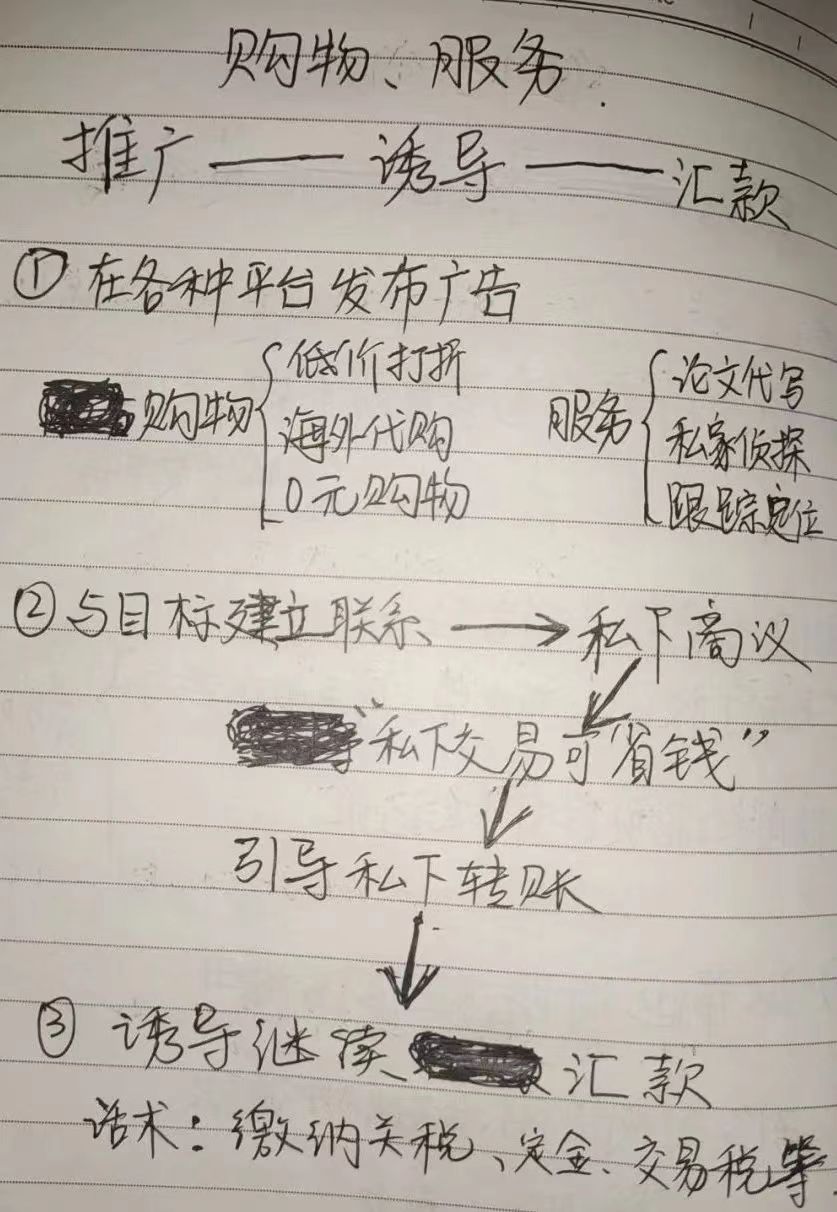 购物、服务
推广——诱导——汇款
①在各种平台发布广告
购物{低价打折 海外代购 0元购物
服务{论文代写 私家侦探 跟踪定位
②与目标建立联系→私下商议
“私下交易可省钱”
引导私下转账
③诱导继续汇款
话术：缴纳关税、定金、交易税等.